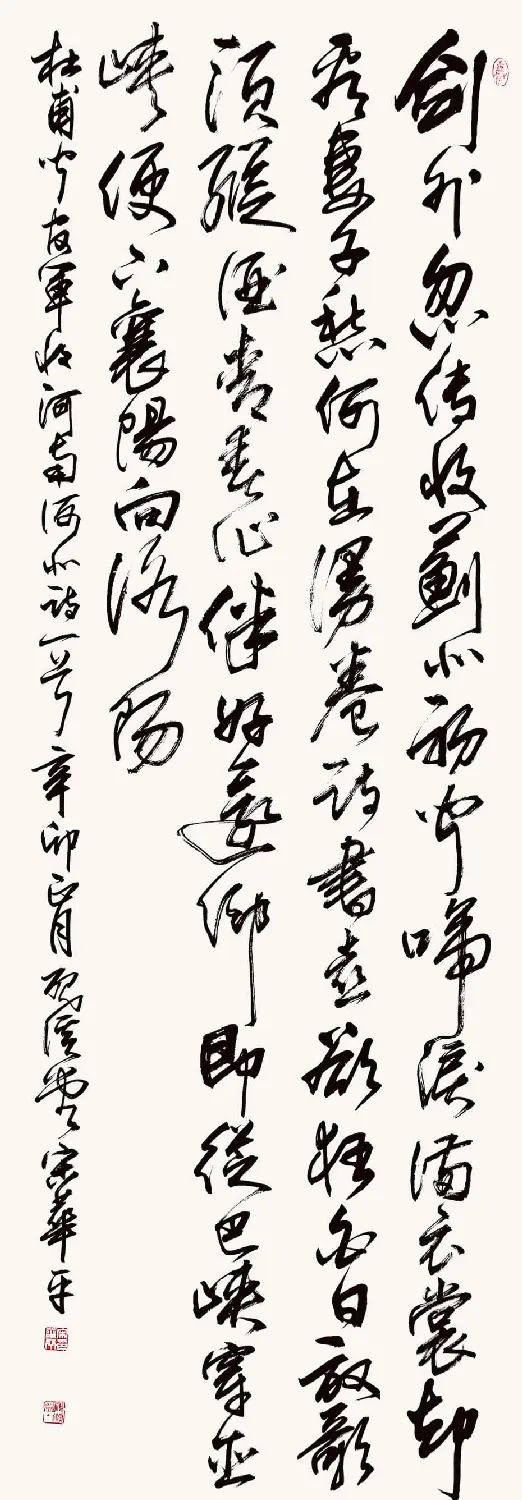 劍外忽傳收薊北初聞啼淚滿衣裳却
看妻子愁何在漫卷詩書喜欲狂白日放歌
須縱酒青春作伴好還鄉即從巴峽穿巫
峽便下襄陽向洛陽
杜甫聞官軍收河南河北詩一首辛卯正月宋華平